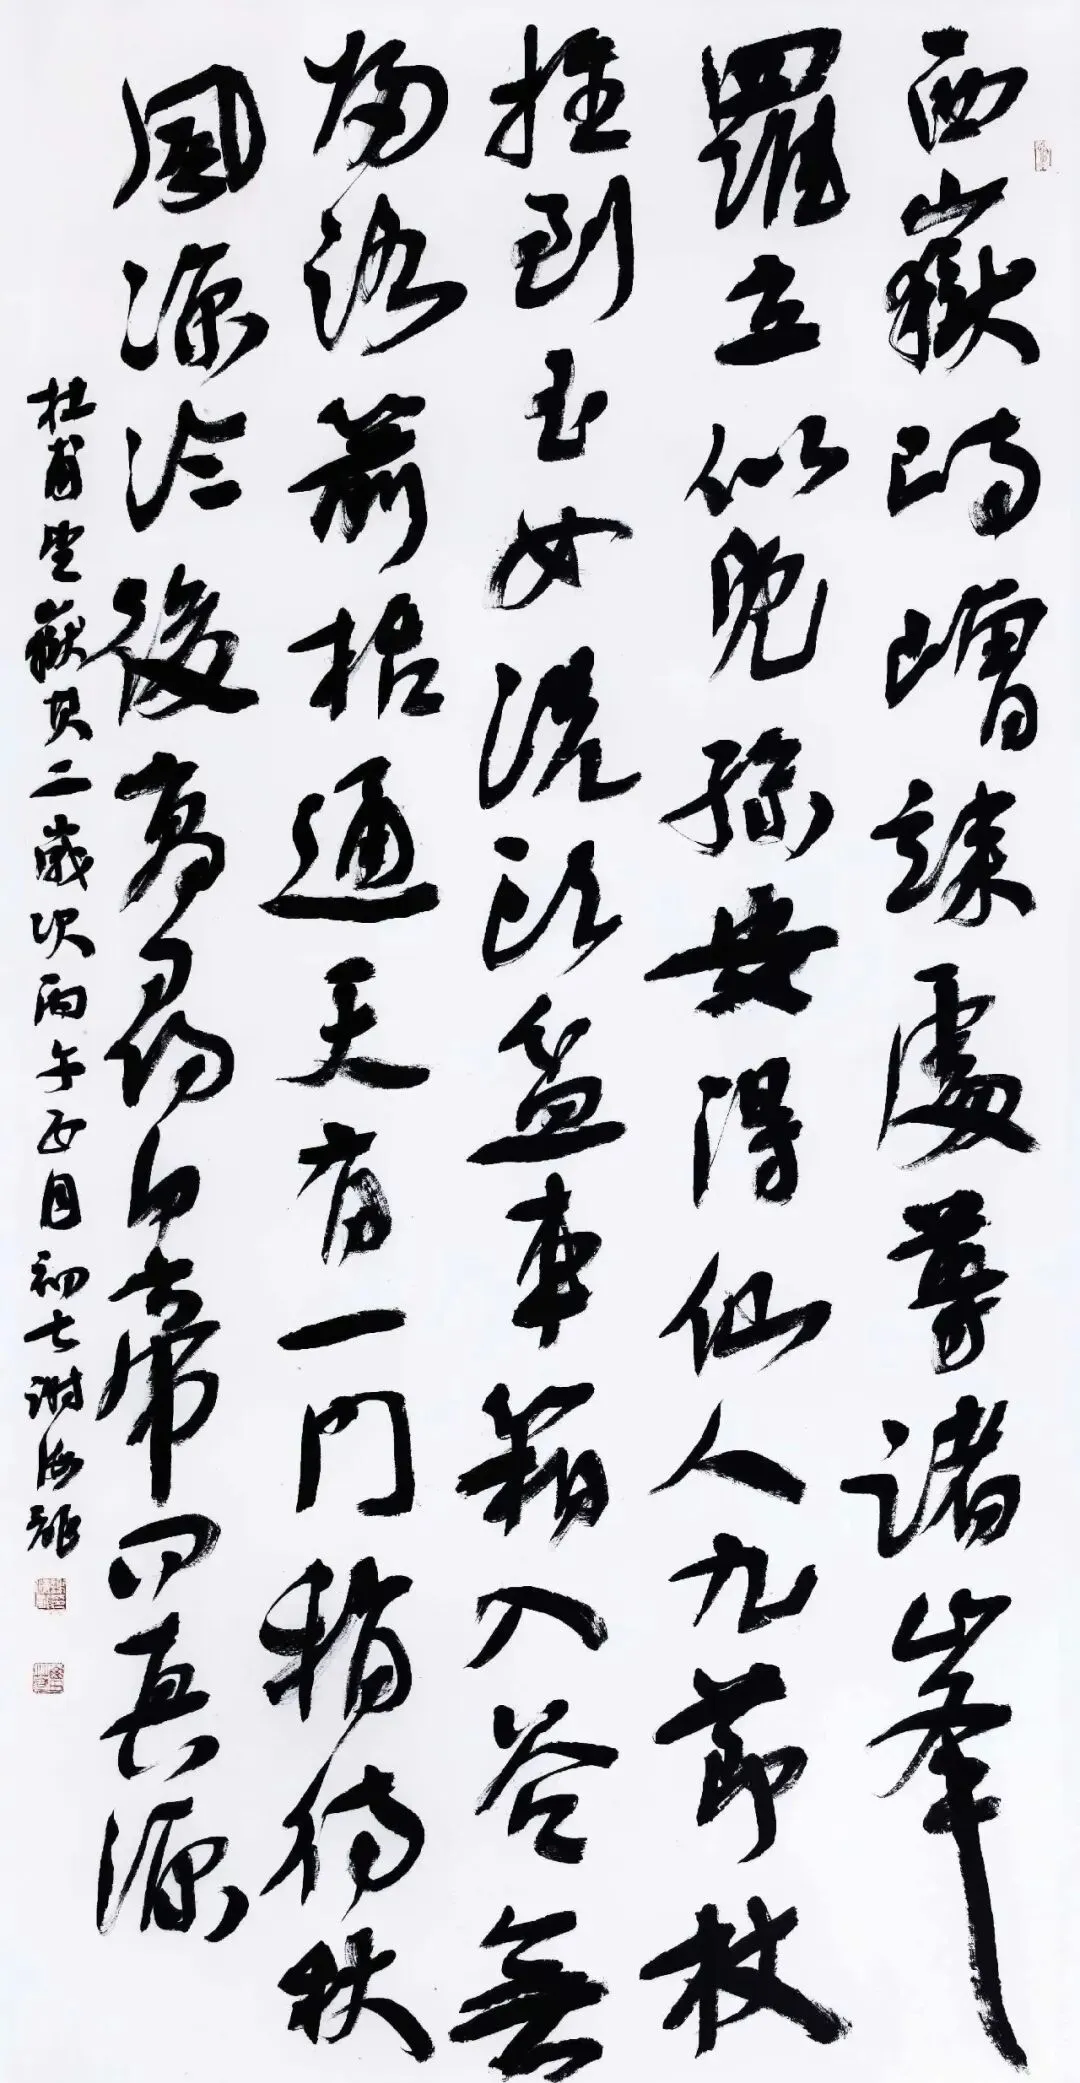 西嶽崚嶒竦處尊諸峯
羅立似兒孫安得仙人九節杖
拄到玉女洗頭盆車箱入谷無
歸路箭栝通天有一門稍待秋
風涼冷後高尋白帝問真源
杜甫望嶽其二歲次丙午正月初七謝海